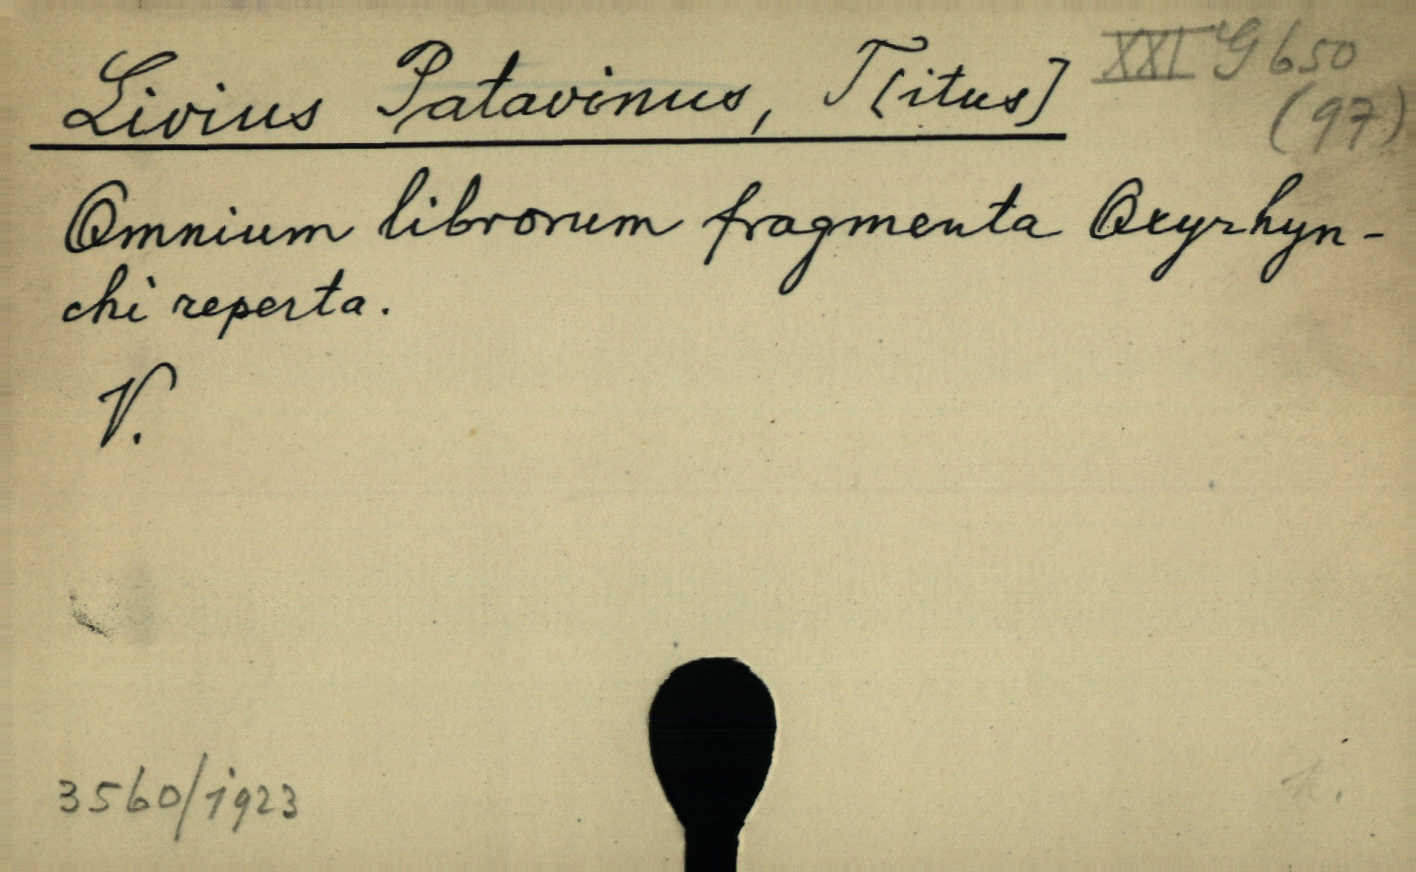 Livius Patavinus, T[itus]
XXI G 650
(97)
Omnium librorum fragmenta Oxyrhyn-
chi reperta.
V.
3560/1923
k.